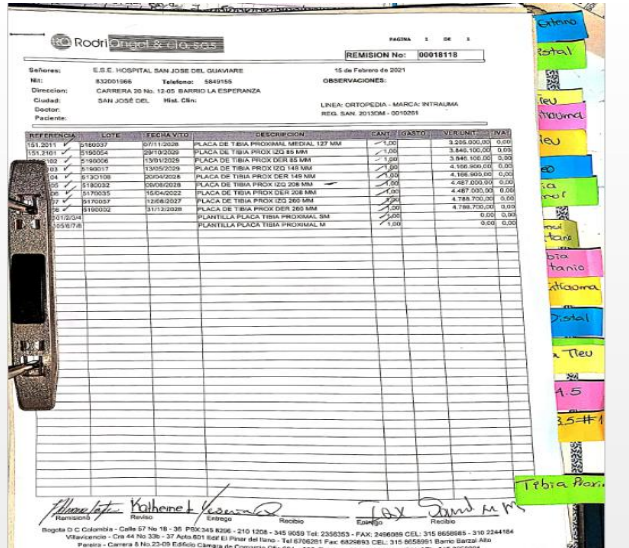 Rodri Angel & CIA SAS
PAGINA 1 DE 1
REMISION No: 00018118
Señores: E.S.E. HOSPITAL SAN JOSE DEL GUAVIARE
15 de Febrero de 2021
Nit: 832001966 Telefono: 5849155
OBSERVACIONES:
Direccion: CARRERA 20 No. 12-05 BARRIO LA ESPERANZA
Ciudad: SAN JOSÉ DEL Hist. Clin:
Doctor:
LINEA: ORTOPEDIA - MARCA: INTRAUMA
Paciente:
REG. SAN. 2013DM - 0010201
REFERENCIA LOTE FECHA VTO DESCRIPCION CANT. GASTO VER.UNIT IVA
151.2011 5180037 07/11/2028 PLACA DE TIBIA PROXIMAL MEDIAL 127 MM 1,00 3.295.000,00 0,00
151.2101 5190054 29/10/2029 PLACA DE TIBIA PROX IZQ 85 MM 1,00 3.846.100,00 0,00
102 5190006 13/01/2029 PLACA DE TIBIA PROX DER 85 MM 1,00 3.846.100,00 0,00
03 5190017 13/05/2029 PLACA DE TIBIA PROX IZQ 149 MM 1,00 4.166.900,00 0,00
04 20/04/2028 PLACA DE TIBIA PROX DER 149 MM 1,00 4.166.900,00 0,00
5180032 09/08/2028 PLACA DE TIBIA PROX IZQ 206 MM 1,00 4.487.000,00 0,00
5170035 15/04/2022 PLACA DE TIBIA PROX DER 206 MM 1,00 4.487.000,00 0,00
5170037 12/08/2027 PLACA DE TIBIA PROX IZQ 260 MM 1,00 4.788.700,00 0,00
5190032 31/12/2029 PLACA DE TIBIA PROX DER 260 MM 1,00 4.788.700,00 0,00
01/2/3/4 PLANTILLA PLACA TIBIA PROXIMAL SM 1,00 0,00 0,00
105/6/7/8 PLANTILLA PLACA TIBIA PROXIMAL M 1,00 0,00 0,00
Externo
Distal
Tleu
4.5
3.5=#1
Tibia Proxi
Katherine
Remisiono Reviso Entrego Recibio Entrego Recibio
Bogota D C Colombia - Calle 57 No 18 - 36 PBX 345 8296 - 210 1208 - 345 9059 Tel: 2358353 - FAX: 2496089 CEL: 315 8658985 - 310 2244184
Villavicencio - Cra 44 No 33b - 37 Apto 601 Edif El Pinar del llano - Tel 6706281 Fax: 6829893 CEL: 315 8658991 Barrio Barzal Alto
Pereira - Carrera 8 No.23-09 Edificio Cámara de Comercio